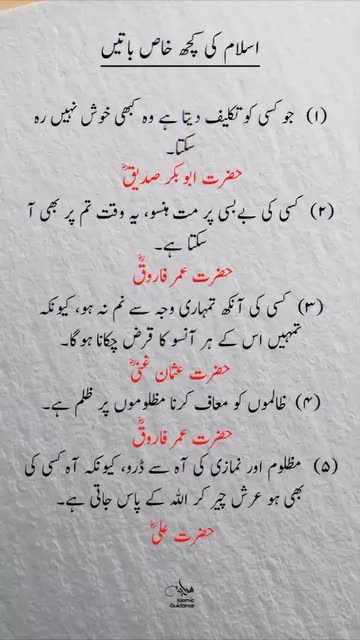 اسلام کی کچھ خاص باتیں
(۱) جو کسی کو تکلیف دیتا ہے وہ کبھی خوش نہیں رہ
سکتا۔
حضرت ابو بکر صدیقؓ
(۲) کسی کی بے بسی پر مت ہنسو، یہ وقت تم پر بھی آ
سکتا ہے۔
حضرت عمر فاروقؓ
(۳) کسی کی آنکھ تمہاری وجہ سے نم نہ ہو، کیونکہ
تمہیں اس کے ہر آنسو کا قرض چکانا ہو گا۔
حضرت عثمان غنیؓ
(۴) ظالموں کو معاف کرنا مظلوموں پر ظلم ہے۔
حضرت عمر فاروقؓ
(۵) مظلوم اور نمازی کی آہ سے ڈرو، کیونکہ آہ کسی کی
بھی ہو عرش چیر کر اللہ کے پاس جاتی ہے۔
حضرت علیؓ
Islamic
Guidance